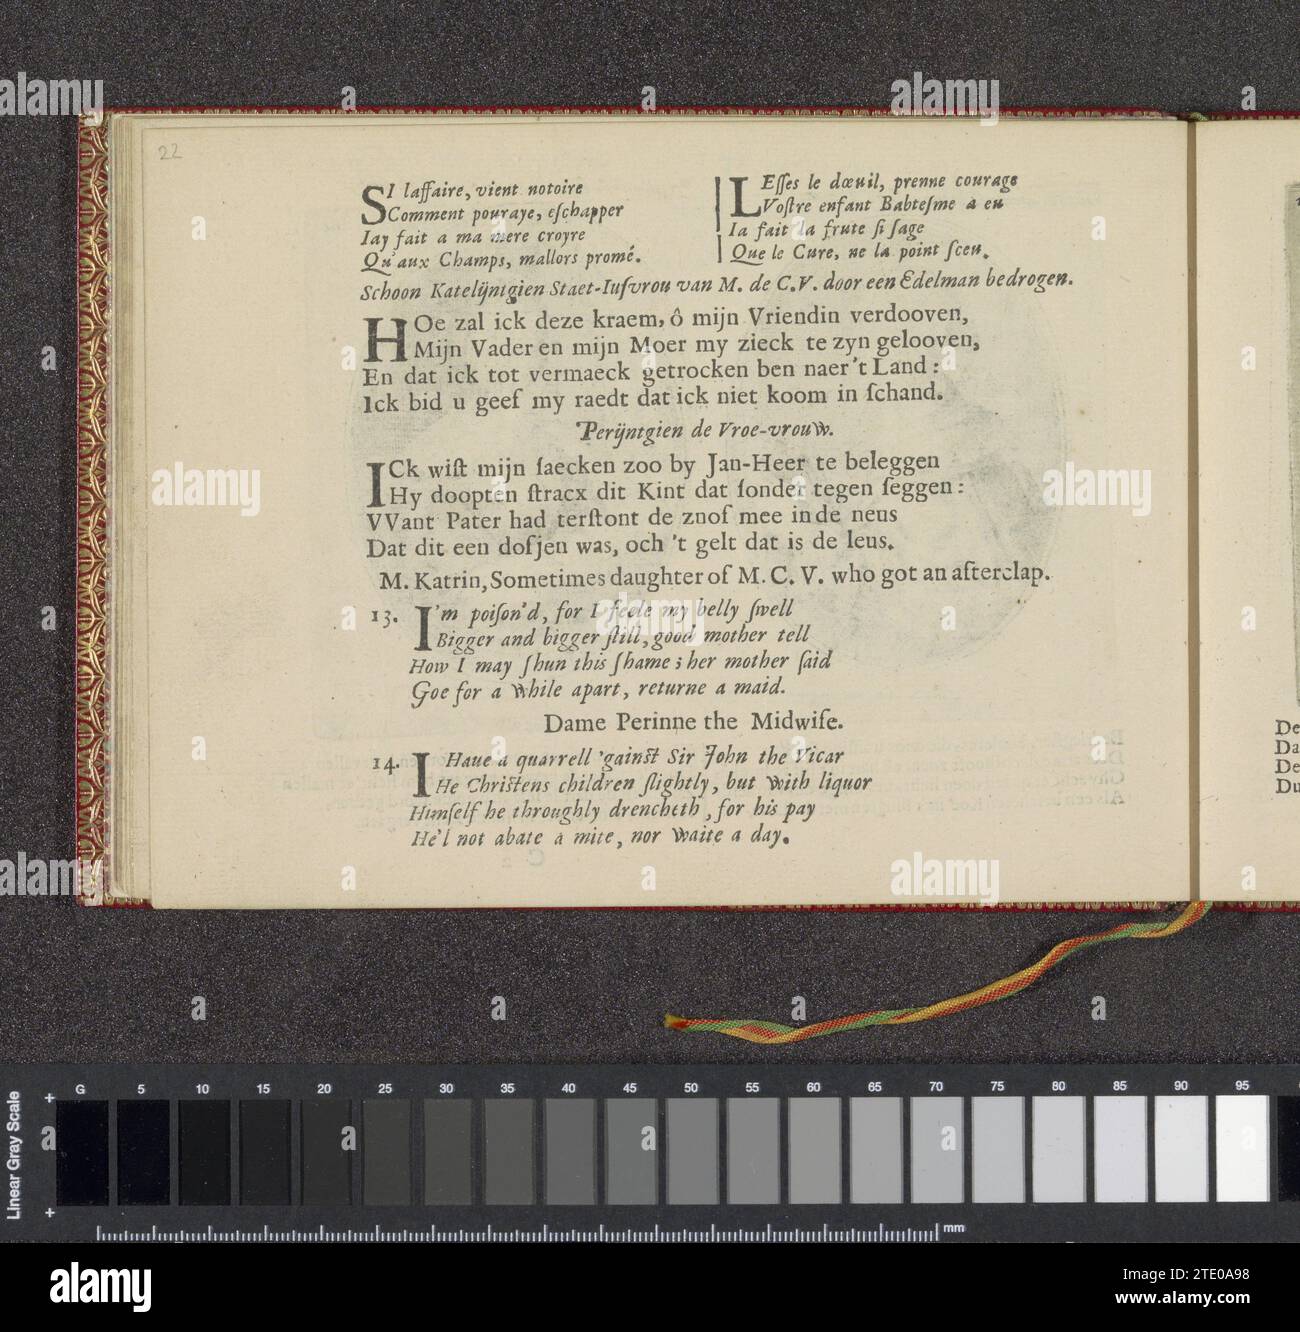 22
SI laffaire, vient notoire
Comment pouraye, eſchapper
Iay fait a ma mere croyre
Qu'aux Champs, mallors promé.
LEſſes le dœuil, prenne courage
Voſtre enfant Babteſme a eu
Ia fait la frute ſi ſage
Que le Cure, ne la point ſceu.
Schoon Katelijntgien Staet-Iuſvrou van M. de C.V. door een Edelman bedrogen.
HOe zal ick deze kraem, ô mijn Vriendin verdooven,
Mijn Vader en mijn Moer my zieck te zyn gelooven,
En dat ick tot vermaeck getrocken ben naer't Land:
Ick bid u geef my raedt dat ick niet koom in ſchand.
Perijntgien de Vroe-vrouw.
ICk wiſt mijn ſaecken zoo by Jan-Heer te beleggen
Hy doopten ſtracx dit Kint dat ſonder tegen ſeggen:
VVant Pater had terſtont de znof mee in de neus
Dat dit een dofjen was, och 't gelt dat is de leus.
M. Katrin, Sometimes daughter of M. C. V. who got an afterclap.
13. I'm poiſon'd, for I feele my belly ſwell
Bigger and bigger ſtill, good mother tell
How I may ſhun this ſhame; her mother ſaid
Goe for a while apart, returne a maid.
Dame Perinne the Midwife.
14. I Haue a quarrell 'gainſt Sir John the Vicar
He Chriſtens children ſlightly, but with liquor
Himſelf he throughly drencheth, for his pay
He'l not abate a mite, nor waite a day.
De
Da
De
Du
Linear Gray Scale
G 5 10 15 20 25 30 35 40 45 50 55 60 65 70 75 80 85 90 95
mm
alamy
Image ID: 2TE0A98
www.alamy.com